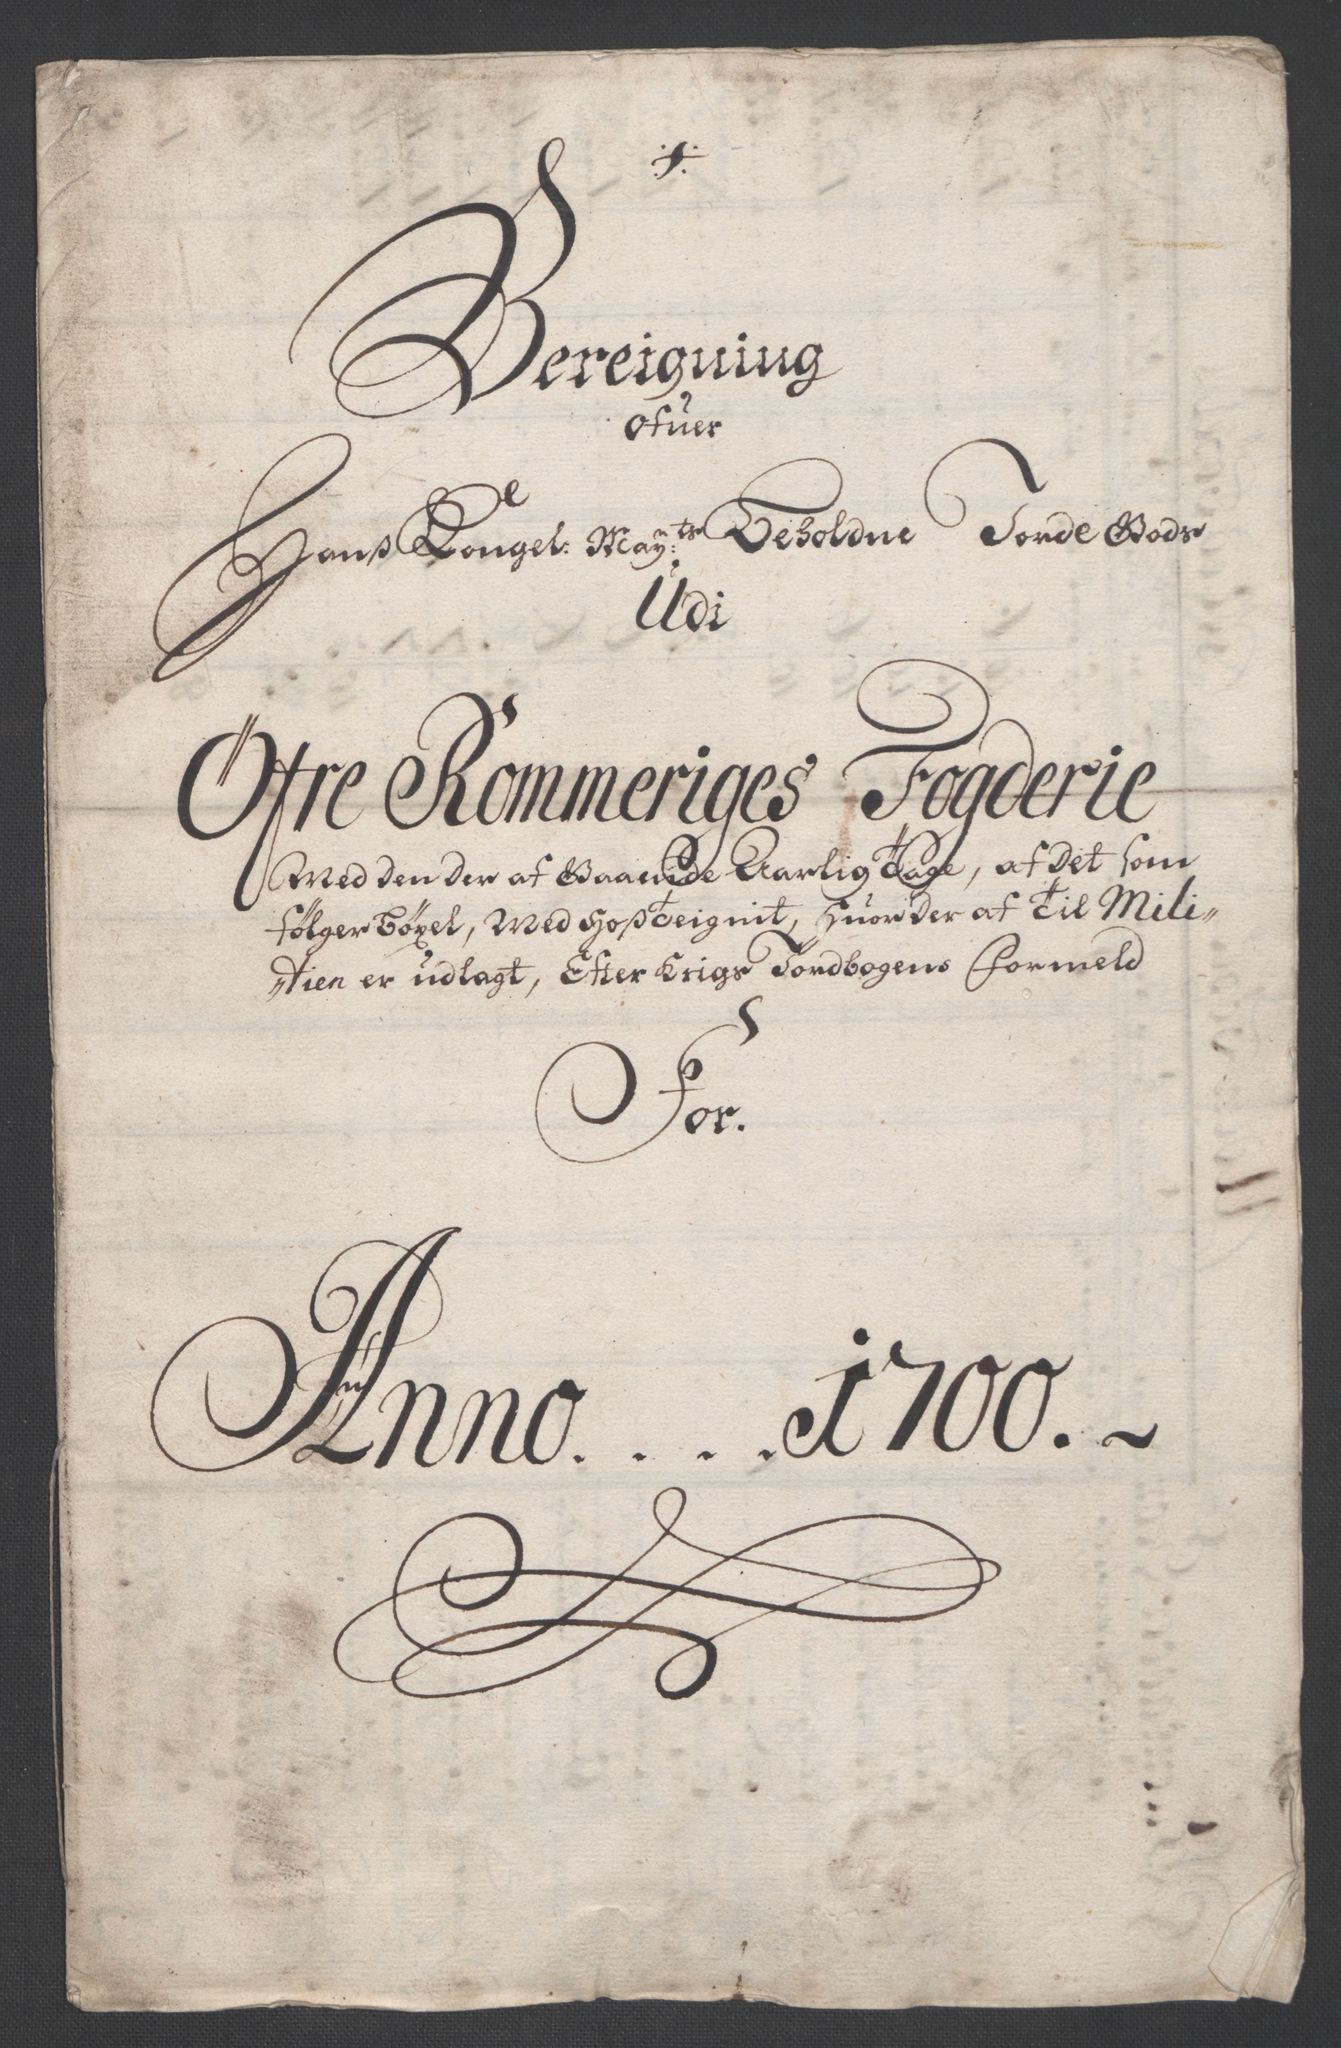 Bereigning
Ofuer
Hanß Kongel: May:ts Beholdne Jorde Gods
Udi
Öfre Rommeriges Fogderie
Med den der af Gaaende Aarlig Tage, af det som
følger Bøxel, Med Hoßteignit, Huor der af til Mili„
„tien er udlagt, Efter Krigs Jordbogens Formeld
For.
Anno. . . . 1700. ~